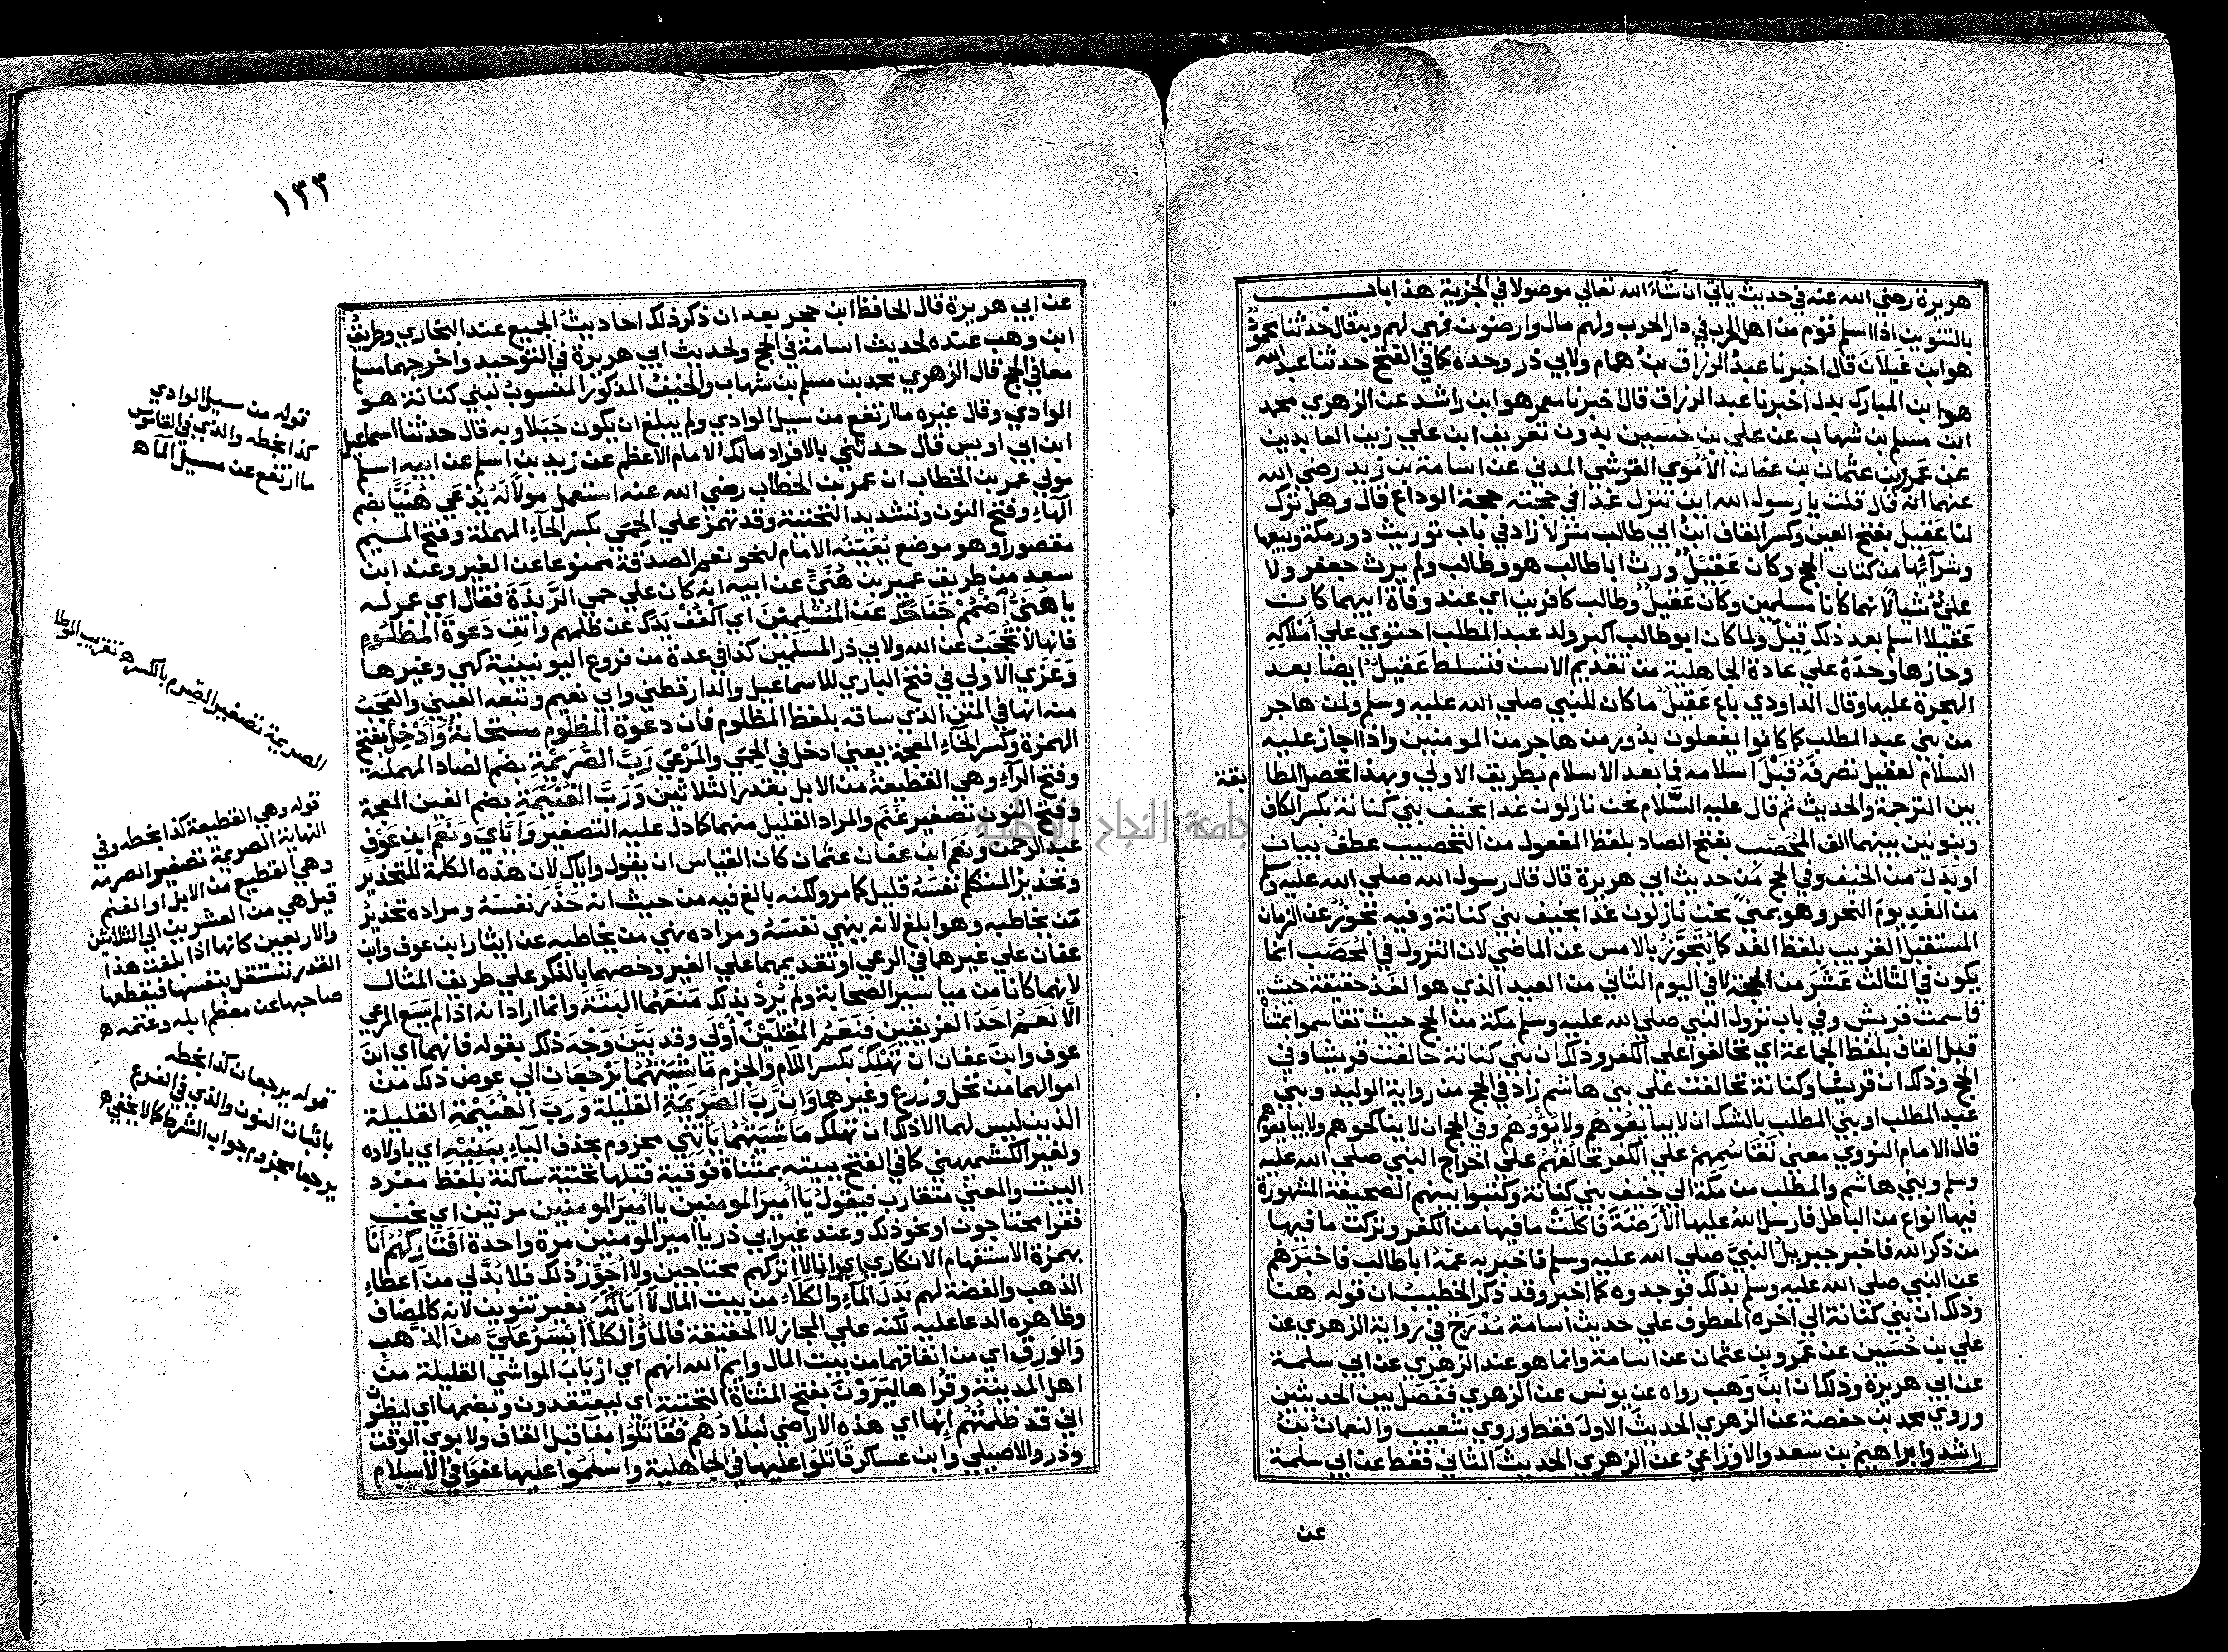 هريرة رضي الله عنه في حديث ياتي ان شاء الله تعالي موصولا في الجزية هذا باب
بالتنوين اذا اسلم قوم من اهل الحرب في دار الحرب ولهم مال وارضون فهي لهم وبه قال حدثنا محمود
هو ابن غيلان قال اخبرنا عبد الرزاق بن همام ولابي ذر وحده كما في الفتح حدثنا عبد الله
هو ابن المبارك بدل اخبرنا عبد الرزاق قال اخبرنا معمر هو ابن راشد عن الزهري محمد
ابن مسلم بن شهاب عن علي بن حسين بدون تعريف ابن علي زين العابدين
عن عمرو بن عثمان بن عفان الأموي القرشي المدني عن اسامة بن زيد رضي الله
عنهما انه قال قلت يا رسول الله اين تنزل غدا في حجته حجة الوداع قال وهل ترك
لنا عقيل بفتح العين وكسر القاف ابن ابي طالب منزلا زاد في باب توريث دور مكة وبيعها
وشرآئها من كتاب الحج وكان عقيل ورث ابا طالب هو وطالب ولم يرث جعفر ولا
علي شيألانهما كانا مسلمين وكان عقيل وطالب كافرين اي عند وفاة ابيهما كان
عقيلا اسلم بعد ذلك قيل ولما كان ابو طالب اكبر ولد عبد المطلب احتوي علي أملاكه
وحازها وحده علي عادة الجاهلية من تقديم الاسن فتسلط عقيل ايضا بعد
الهجرة عليها وقال الداودي باع عقيل ما كان للنبي صلي الله عليه وسلم ولمن هاجر
من بني عبد المطلب كما كانوا يفعلون بدور من هاجر من المومنين واذا اجاز عليه
السلام لعقيل تصرفه قبل اسلامه فما بعد الاسلام بطريق الاولي وبهذا تحصل المطا
بقة
بين الترجمة والحديث ثم قال عليه السلام نحن نازلون غدا بخيف بني كنانة بكسر الكاف
وبنونين بينهما الف المحصب بفتح الصاد بلفظ المفعول من التحصيب عطف بيان
او بدل من الخيف وفي الحج من حديث ابي هريرة قال قال رسول الله صلي الله عليه وسلم
من الغد يوم النحر وهو بمني نحن نازلون غدا بخيف بني كنانة وفيه تجوز عن الزمان
المستقبل القريب بلفظ الغد كما يتجوز بالامس عن الماضي لان النزول في المحصب انما
يكون في الثالث عشر من الحجة لا في اليوم الثاني من العيد الذي هو الغد حقيقة حيث
قاسمت قريش وفي باب نزول النبي صلي الله عليه وسلم مكة من الحج حيث تقاسموا بمثناة
قبل القاف بلفظ الجماعة اي تحالفوا علي الكفر وذلك ان بني كنانة حالفت قريشا وفي
الحج وذلك ان قريشا وكنانة تحالفت علي بني هاشم زاد في الحج من رواية الوليد وبني
عبد المطلب او بني المطلب بالشك ان لا يبايعوهم ولا يؤوهم وفي الحج ان لا يناكحوهم ولا يبايعوهم
قال الامام النووي معني تقاسمهم علي الكفر تحالفهم علي اخراج النبي صلي الله عليه
وسلم وبني هاشم والمطلب من مكة الي خيف بني كنانة وكتبوا بينهم الصحيفة المشهورة
فيها انواع من الباطل فارسل الله عليها الأرضة فاكلت ما فيها من الكفر وتركت ما فيها
من ذكر الله فاخبر جبريل النبي صلي الله عليه وسلم فاخبر به عمه ابا طالب فاخبرهم
عن النبي صلي الله عليه وسلم بذلك فوجدوه كما اخبر وقد ذكر الخطيب ان قوله هنا
وذلك ان بني كنانة الي اخره المعطوف علي حديث اسامة مدرج في رواية الزهري عن
علي بن حسين عن عمرو بن عثمان عن اسامة وانما هو عند الزهري عن ابي سلمة
عن ابي هريرة وذلك ان ابن وهب رواه عن يونس عن الزهري ففصل بين الحديثين
وروي محمد بن حفصة عن الزهري الحديث الاول فقط وروي شعيب والنعمان بن
راشد وابراهيم بن سعد والاوزاعي عن الزهري الحديث الثاني فقط عن ابي سلمة
عن
١٣٣
عن ابي هريرة قال الحافظ ابن حجر بعد ان ذكر ذلك احاديث الجميع عند البخاري وطريق
ابن وهب عنده لحديث اسامة في الحج ولحديث ابي هريرة في التوحيد واخرجهما مسلم
معا في الحج قال الزهري محمد بن مسلم بن شهاب والخيف المذكور المنسوب لبني كنانة هو
الوادي وقال غيره ما ارتفع من سيل الوادي ولم يبلغ ان يكون جبلا وبه قال حدثنا اسماعيل
ابن ابي اويس قال حدثني بالافراد مالك الامام الاعظم عن زيد بن اسلم عن ابيه اسلم
مولي عمر بن الخطاب ان عمر بن الخطاب رضي الله عنه استعمل مولا له يدعي هنيا بضم
الهاء وفتح النون وتشديد التحتية وقد تهمز علي الحمي بكسر الحآء المهملة وفتح الميم
مقصورا وهو موضع يعينه الامام لنحو نعم الصدقة ممنوعا عن الغير وعند ابن
سعد من طريق عمير بن هني عن ابيه انه كان علي حمي الربذة فقال اي عمر له
يا هني أضمم جناحك عن المسلمين اي اكفف يدك عن ظلمهم واتق دعوة المظلوم
فانها لا تحجب عن الله ولابي ذر المسلمين كذا في عدة من فروع اليونينية كهي وغيرها
وعزي الاولي في فتح الباري للاسماعيل والدارقطني وابي نعيم وتبعه العيني والعجب
منه انها في المتن الذي ساقه بلفظ المظلوم فان دعوة المظلوم مستجابة وأدخل بفتح
الهمزة وكسر الخاء المعجمة يعني ادخل في الحمي والمرعي رب الصريمة بضم الصاد المهملة
وفتح الرآء وهي القطيعة من الابل بقدر الثلاثين ورب الغنيمة بضم الغين المعجمة
وفتح النون تصغير غنم والمراد القليل منهما كما دل عليه التصغير وإياي ونعم ابن عوف
عبد الرحمن ونعم ابن عفان عثمان كان القياس ان يقول واياك لان هذه الكلمة للتحذير
وتحذير المتكلم نفسه قليل كما مر ولكنه بالغ فيه من حيث انه حذر نفسه ومراده تحذير
من يخاطبه وهو ابلغ لأنه ينهي نفسه ومراده نهي من يخاطبه عن ايثار ابن عوف وابن
عفان علي غيرهما في الرعي او تقديمهما علي الغير وخصهما بالذكر علي طريق المثال
لانهما كانا من مياسير الصحابة ولم يرد بذلك منعهما البتة وانما اراد انه اذا لم يسع المرعي
الا نعم احد الفريقين فنعم المقلين أولي وقد بين وجه ذلك بقوله فانهما اي ابن
عوف وابن عفان ان تهلك بكسر اللام والجزم ماشيتهما يرجعان الي عوض ذلك من
اموالهما من نخل وزرع وغيرهما وان رب الصريمة القليلة ورب الغنيمة القليلة
الذين ليس لهما الا ذلك ان تهلك ماشيتهما يأتني مجزوم بحذف الياء ببنيه اي باولاده
ولغير الكشميهني كما في الفتح ببيته بمثناة فوقية قبلها تحتية ساكنة بلفظ مفرد
البيت والمعني متقارب فيقول يا امير المومنين يا أمير المومنين مرتين اي نحن
فقرا محتاجون او نحو ذلك وعند غير ابي ذر يا امير المومنين مرة واحدة أفتاركهم أنا
بهمزة الاستفهام الانكاري اي انا لا اتركهم محتاجين ولا اجوز ذلك فلا بد لي من اعطاء
الذهب والفضة لهم بدل الماء والكلاء من بيت المال لا أبالك بغير تنوين لانه كالمضاف
وظاهره الدعا عليه لكنه علي المجاز لا الحقيقة فالماء والكلأ أيسر علي من الذهب
والورق اي من انفاقهما من بيت المال وايم الله انهم اي ارباب المواشي القليلة من
اهل المدينة وقراها ليرون بفتح المثناة التحتية اي ليعتقدون وبضمها اي ليظنون
اني قد ظلمتهم إنها اي هذه الاراضي لبلادهم فقاتلوا بفآ قبل القاف ولابوي الوقت
وذر والاصيلي وابن عساكر قاتلوا عليها في الجاهلية واسلموا عليها عفوا في الاسلام
قوله من سيل الوادي
كذا بخطه والذي في القاموس
ما ارتفع عن مسيل المآ ه
الصريمة تصغير الصرم بالكسر ه تقريب الموطا
قوله وهي القطيعة كذا بخطه وفي
النهاية الصريمة تصغير الصرمه
وهي القطيع من الابل او الغنم
قيل هي من العشرين الي الثلاثين
والاربعين كانها اذا بلغت هذا
القدر تستقل بنفسها فيقطعها
صاحبها عن معظم ابله وغنمه ه
قوله يرجعان كذا بخطه
باثبات النون والذي في الفرع
يرجعا مجزوم جواب الشرط كما لا يخفي ه
جامعة النجاح الوطنية